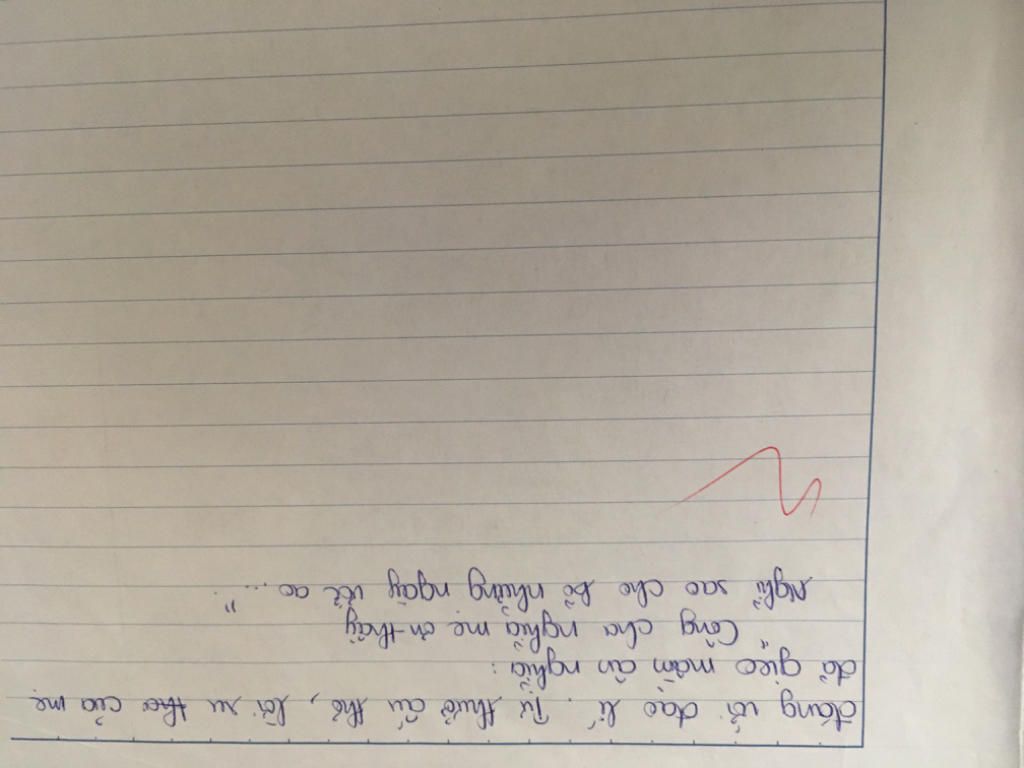 đáng với đạo lí. Từ thuở ấu thơ, lời ru thơ của mẹ
đã gieo mầm ân nghĩa:
"Công cha nghĩa mẹ ơn thầy
Nghĩ sao cho bõ những ngày ước ao..."